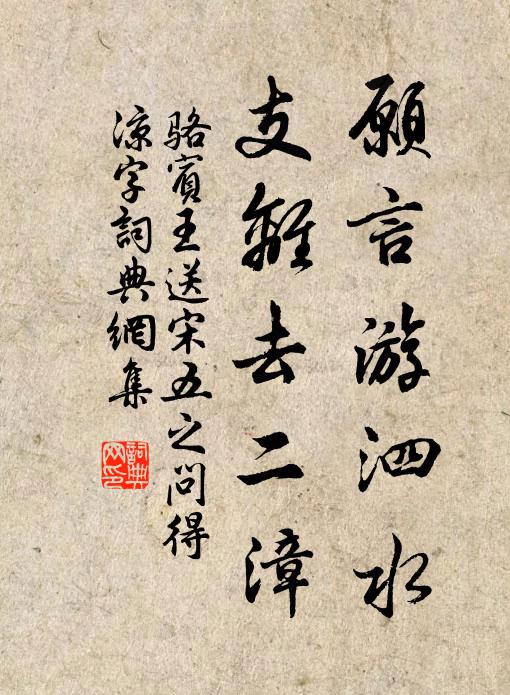 願言游泗水
支離去二漳
駱賓王送宋五之問得
涼字詞典網集
詞典
网印